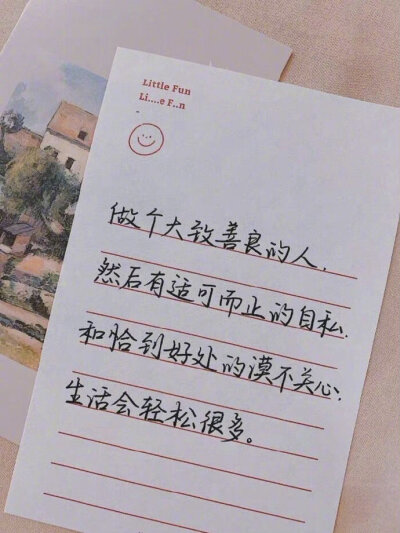 Little Fun
Li....e F..n
做个大致善良的人,
然后有适可而止的自私,
和恰到好处的漠不关心,
生活会轻松很多。